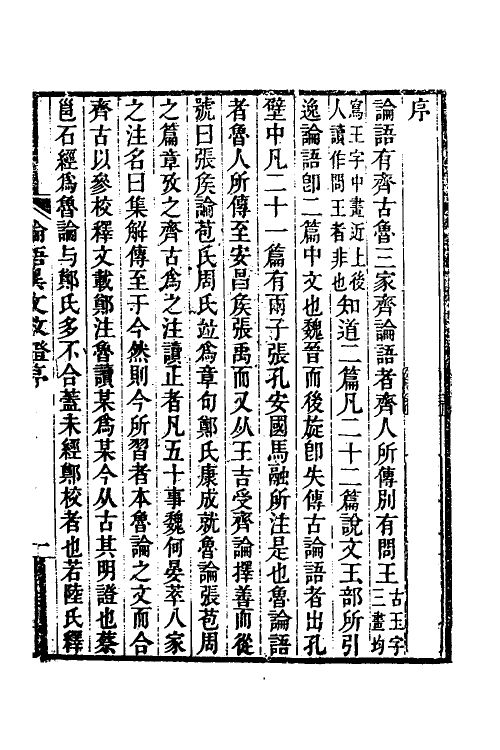 序
論語有齊古魯三家齊論語者齊人所傳別有問王古王字三畫均
寫王字中畫近上後人讀作問王者非也知道二篇凡二十二篇說文王部所引
逸論語卽二篇中文也魏晉而後旋卽失傳古論語者出孔
壁中凡二十一篇有兩子張孔安國馬融所注是也魯論語
者魯人所傳至安昌矦張禹而又从王吉受齊論擇善而從
號曰張矦論苞氏周氏竝爲章句鄭氏康成就魯論張苞周
之篇章攷之齊古爲之注讀正者凡五十事魏何晏萃八家
之注名曰集解傳至于今然則今所習者本魯論之文而合
齊古以參校釋文載鄭注魯讀某爲某今从古其明證也蔡
邕石經爲魯論与鄭氏多不合蓋未經鄭校者也若陸氏釋
論語異文攷證序
一